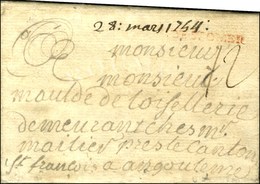 28: mars 1764
monsieur
monsieur
maulde de loisellerie
demeurant ches mr
pres le canton
st francois a angouleme